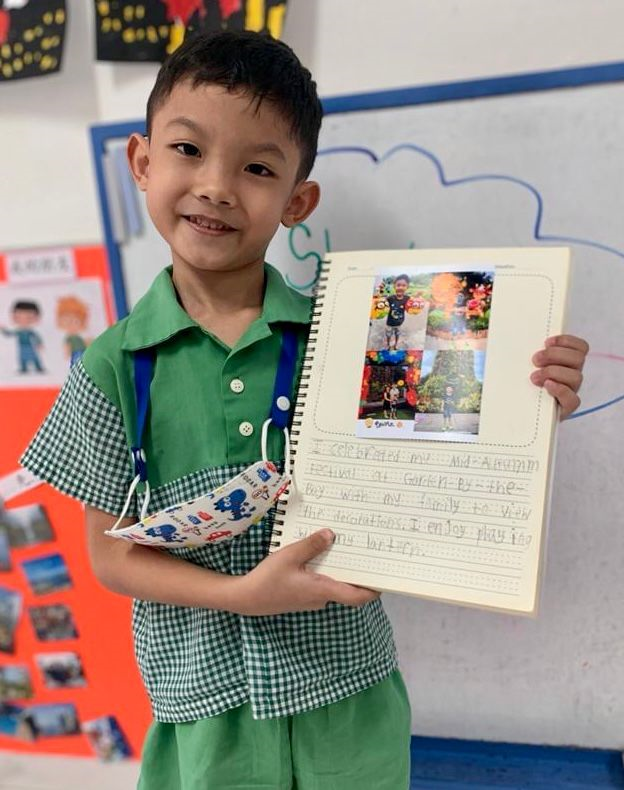 I celebrated my Mid-Autumn
festival at Garden-By-the-
Bay with my family to view
the decorations. I enjoy playing
my lantern.